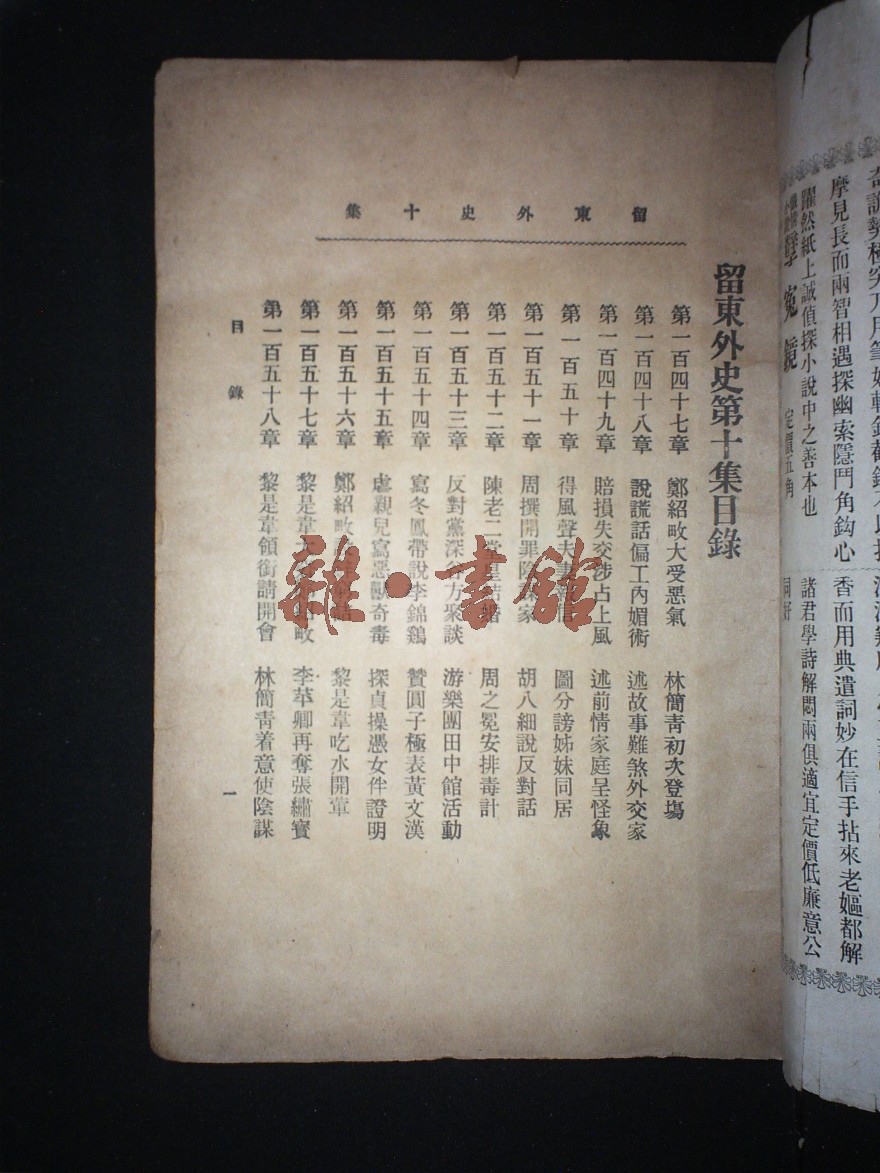 奇
摩見長而兩智相遇探幽索隱鬥角鈎心
躍然紙上誠偵探小說中之善本也
冤鏡 定價五角
香而用典遣詞妙在信手拈來老嫗都解
諸君學詩解悶兩俱適宜定價低廉意公
同好
留東外史十集
留東外史第十集目錄
第一百四十七章 鄭紹畋大受悪氣 林簡青初次登塲
第一百四十八章 說謊話偏工內媚術 述故事難煞外交家
第一百四十九章 賠損失交涉占上風 述前情家庭呈怪象
第一百五十章 得風聲夫妻 信 圖分謗姊妹同居
第一百五十一章 周撰開罪陳 家 胡八細說反對話
第一百五十二章 陳老二堂皇結婚 周之冕安排毒計
第一百五十三章 反對黨深谷方聚談 游樂團田中館活動
第一百五十四章 寫冬鳳帶說李錦鷄 贊圓子極表黃文漢
第一百五十五章 虐親兒寫惡獸奇毒 探貞操憑女伴證明
第一百五十六章 鄭紹畋 黎是韋吃水開葷
第一百五十七章 黎是韋大 紹畋 李苹卿再奪張繡寶
第一百五十八章 黎是韋領銜請開會 林簡青着意使陰謀
目錄
一
雜·書館